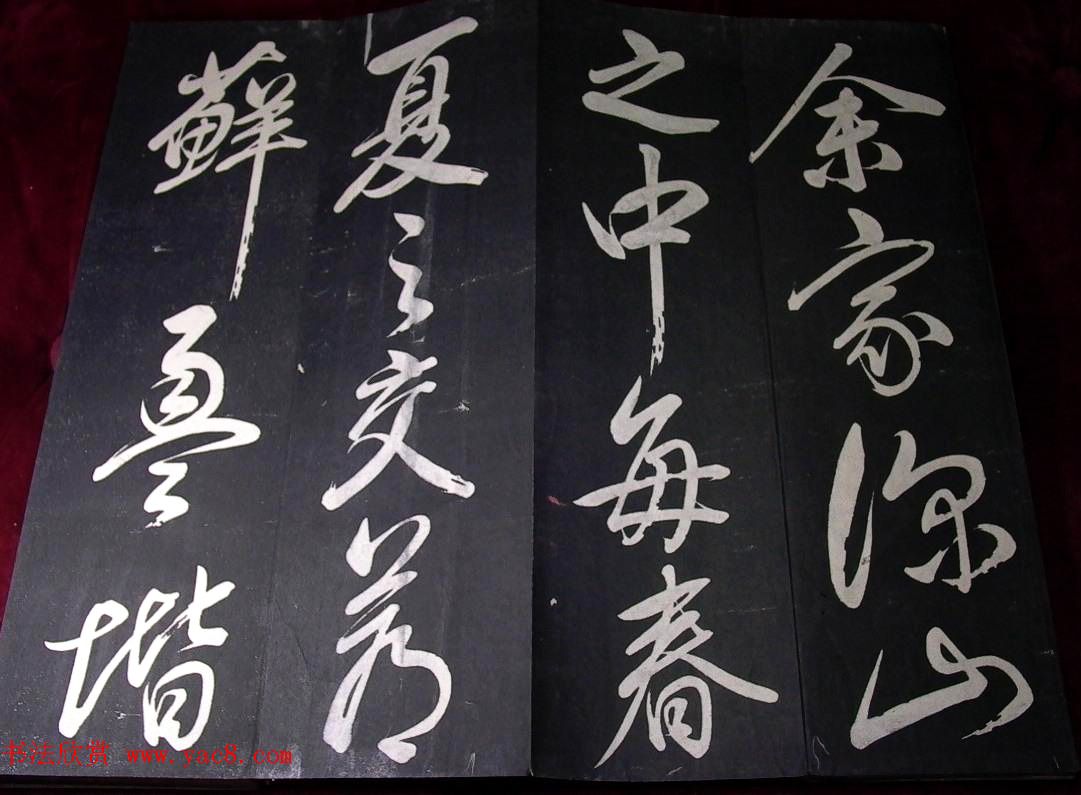 余家深山
之中每春
夏之交蒼
蘚盈堦
书法欣赏 www.yac8.com